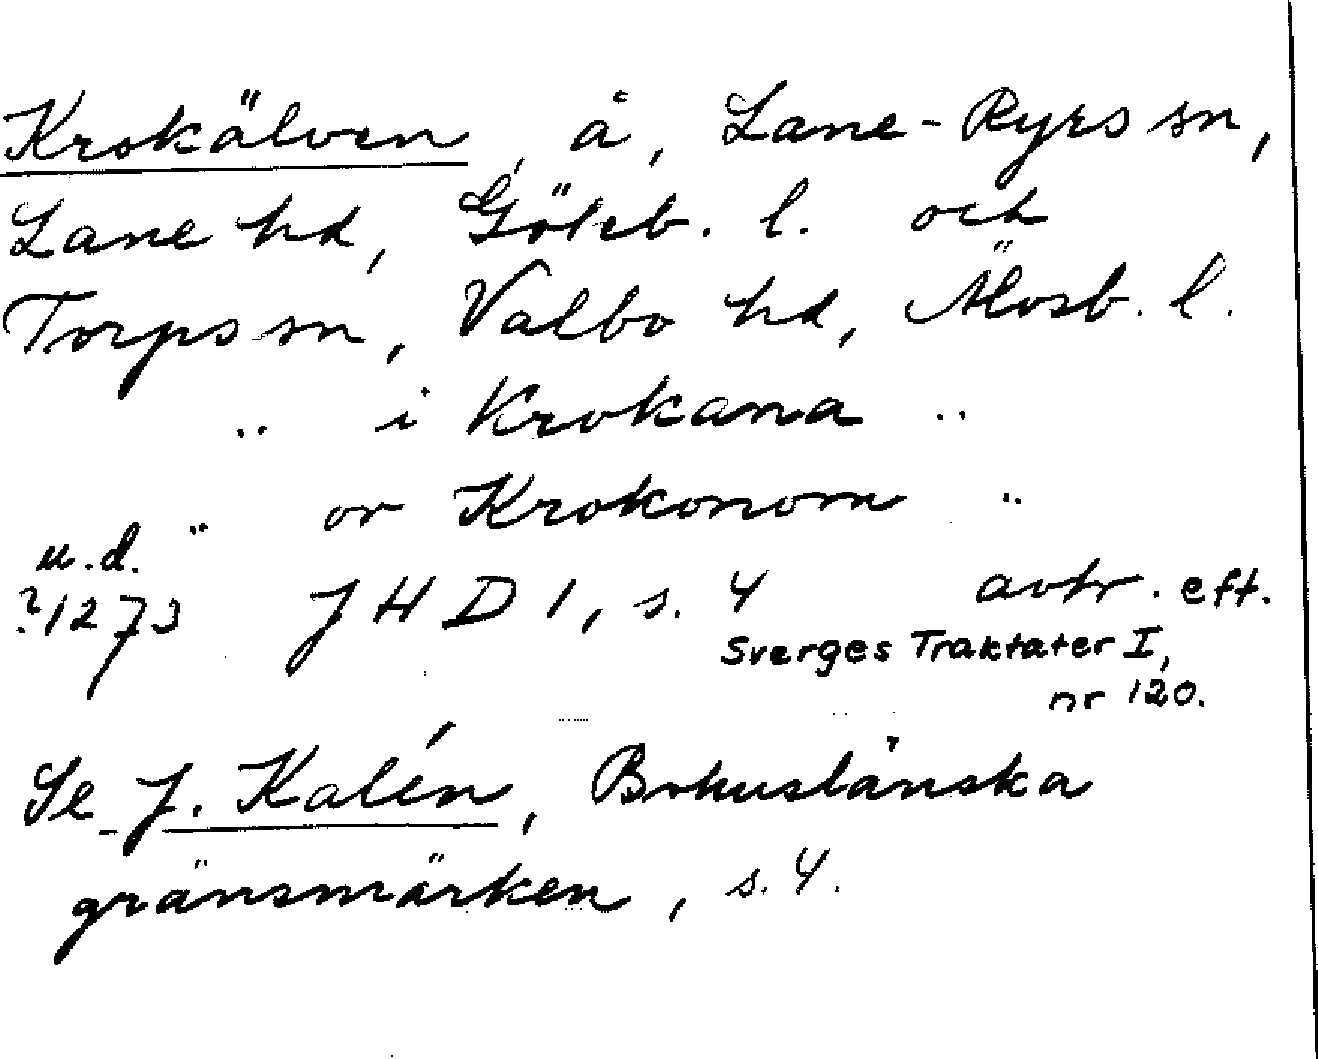 Krokälven, å, Lane-Ryrs sn,
Lane hd, Göteb. l. och
Torps sn, Valbo hd, Älvsb. l.
.. i Krokana ..
.. or Krokonom ..
u.d.
?1273 JHD 1, s. 4 avtr. eft.
Sverges Traktater I,
nr 120.
Se J. Kalén, Bohuslänska
gränsmärken, s. 4.